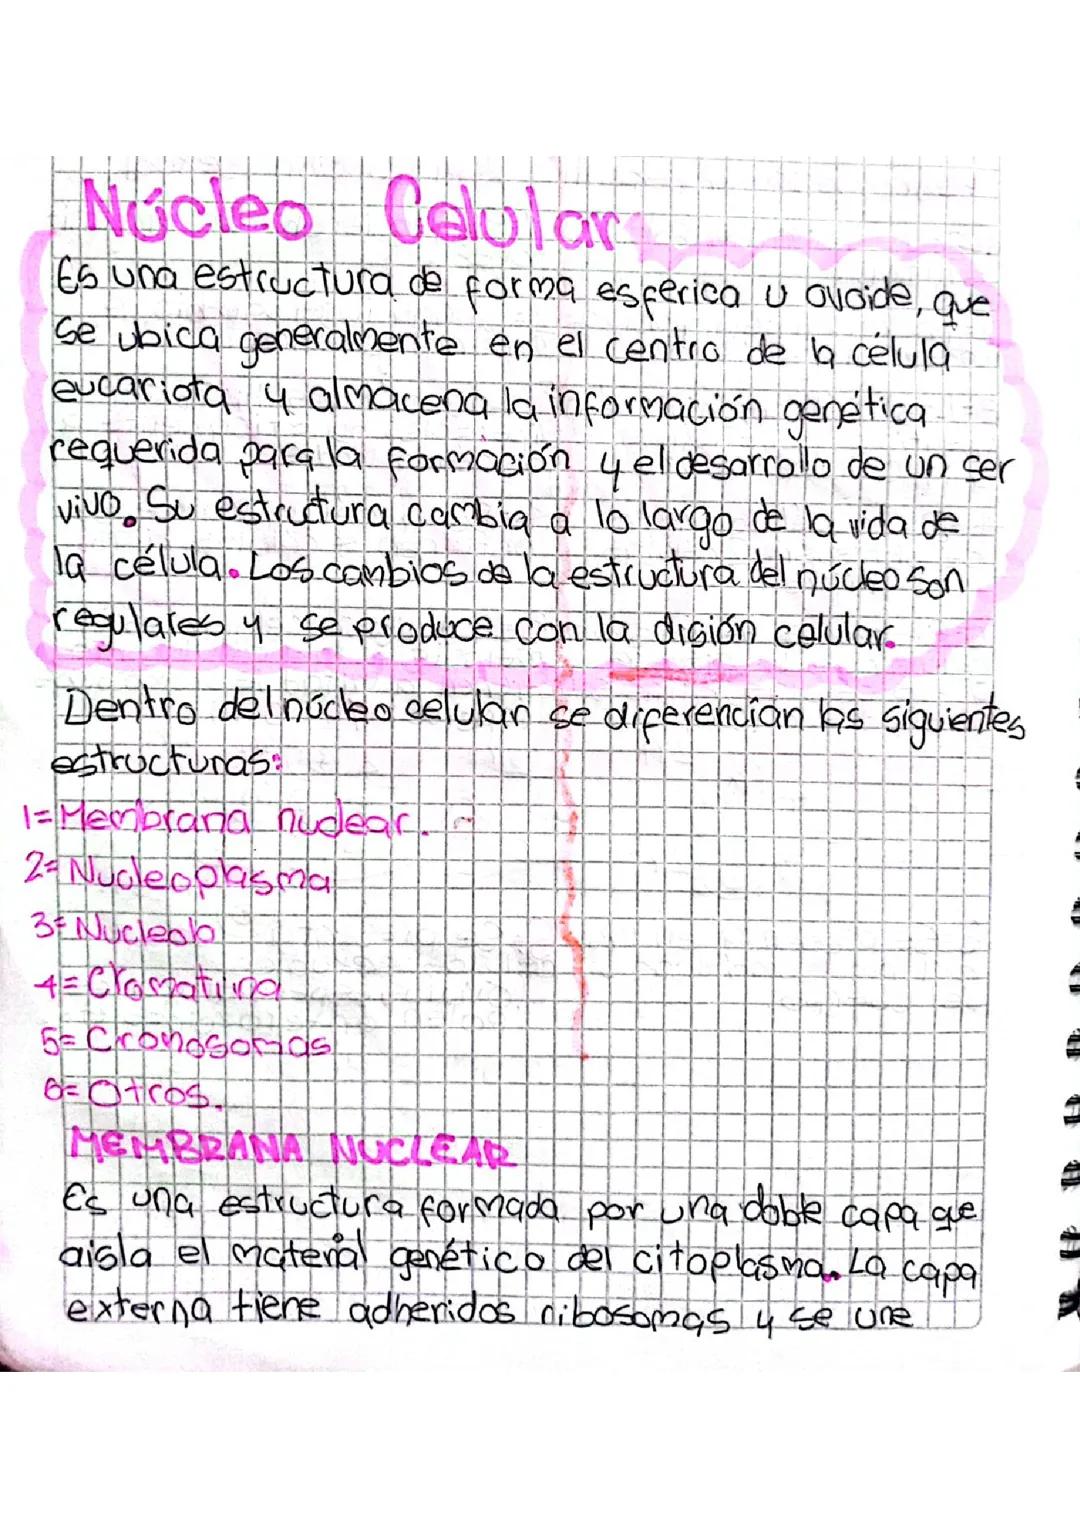 Núcleo Celular
Es una estructura de forma esferica u ovoide, que
se ubica generalmente en el centro de la célula
eucariota y almacena la información genética
requerida para la formación y el desarrollo de un ser
vivo. Su estructura cambia a lo largo de la vida de
la célula. Los cambios de la estructura del núcleo son
regulares y se produce con la disión celular.
Dentro del núcleo celular se diferencian las siguientes
estructuras:
1= Membrana nuclear.
2= Nucleoplasma
3= Nucleolo
4= Cromatina
5= Cromosomas
6= Otros.
MEMBRANA NUCLEAR
Es una estructura formada por una doble capa que
aisla el material genético del citoplasma. La capa
externa tiene adheridos ribosomas y se une